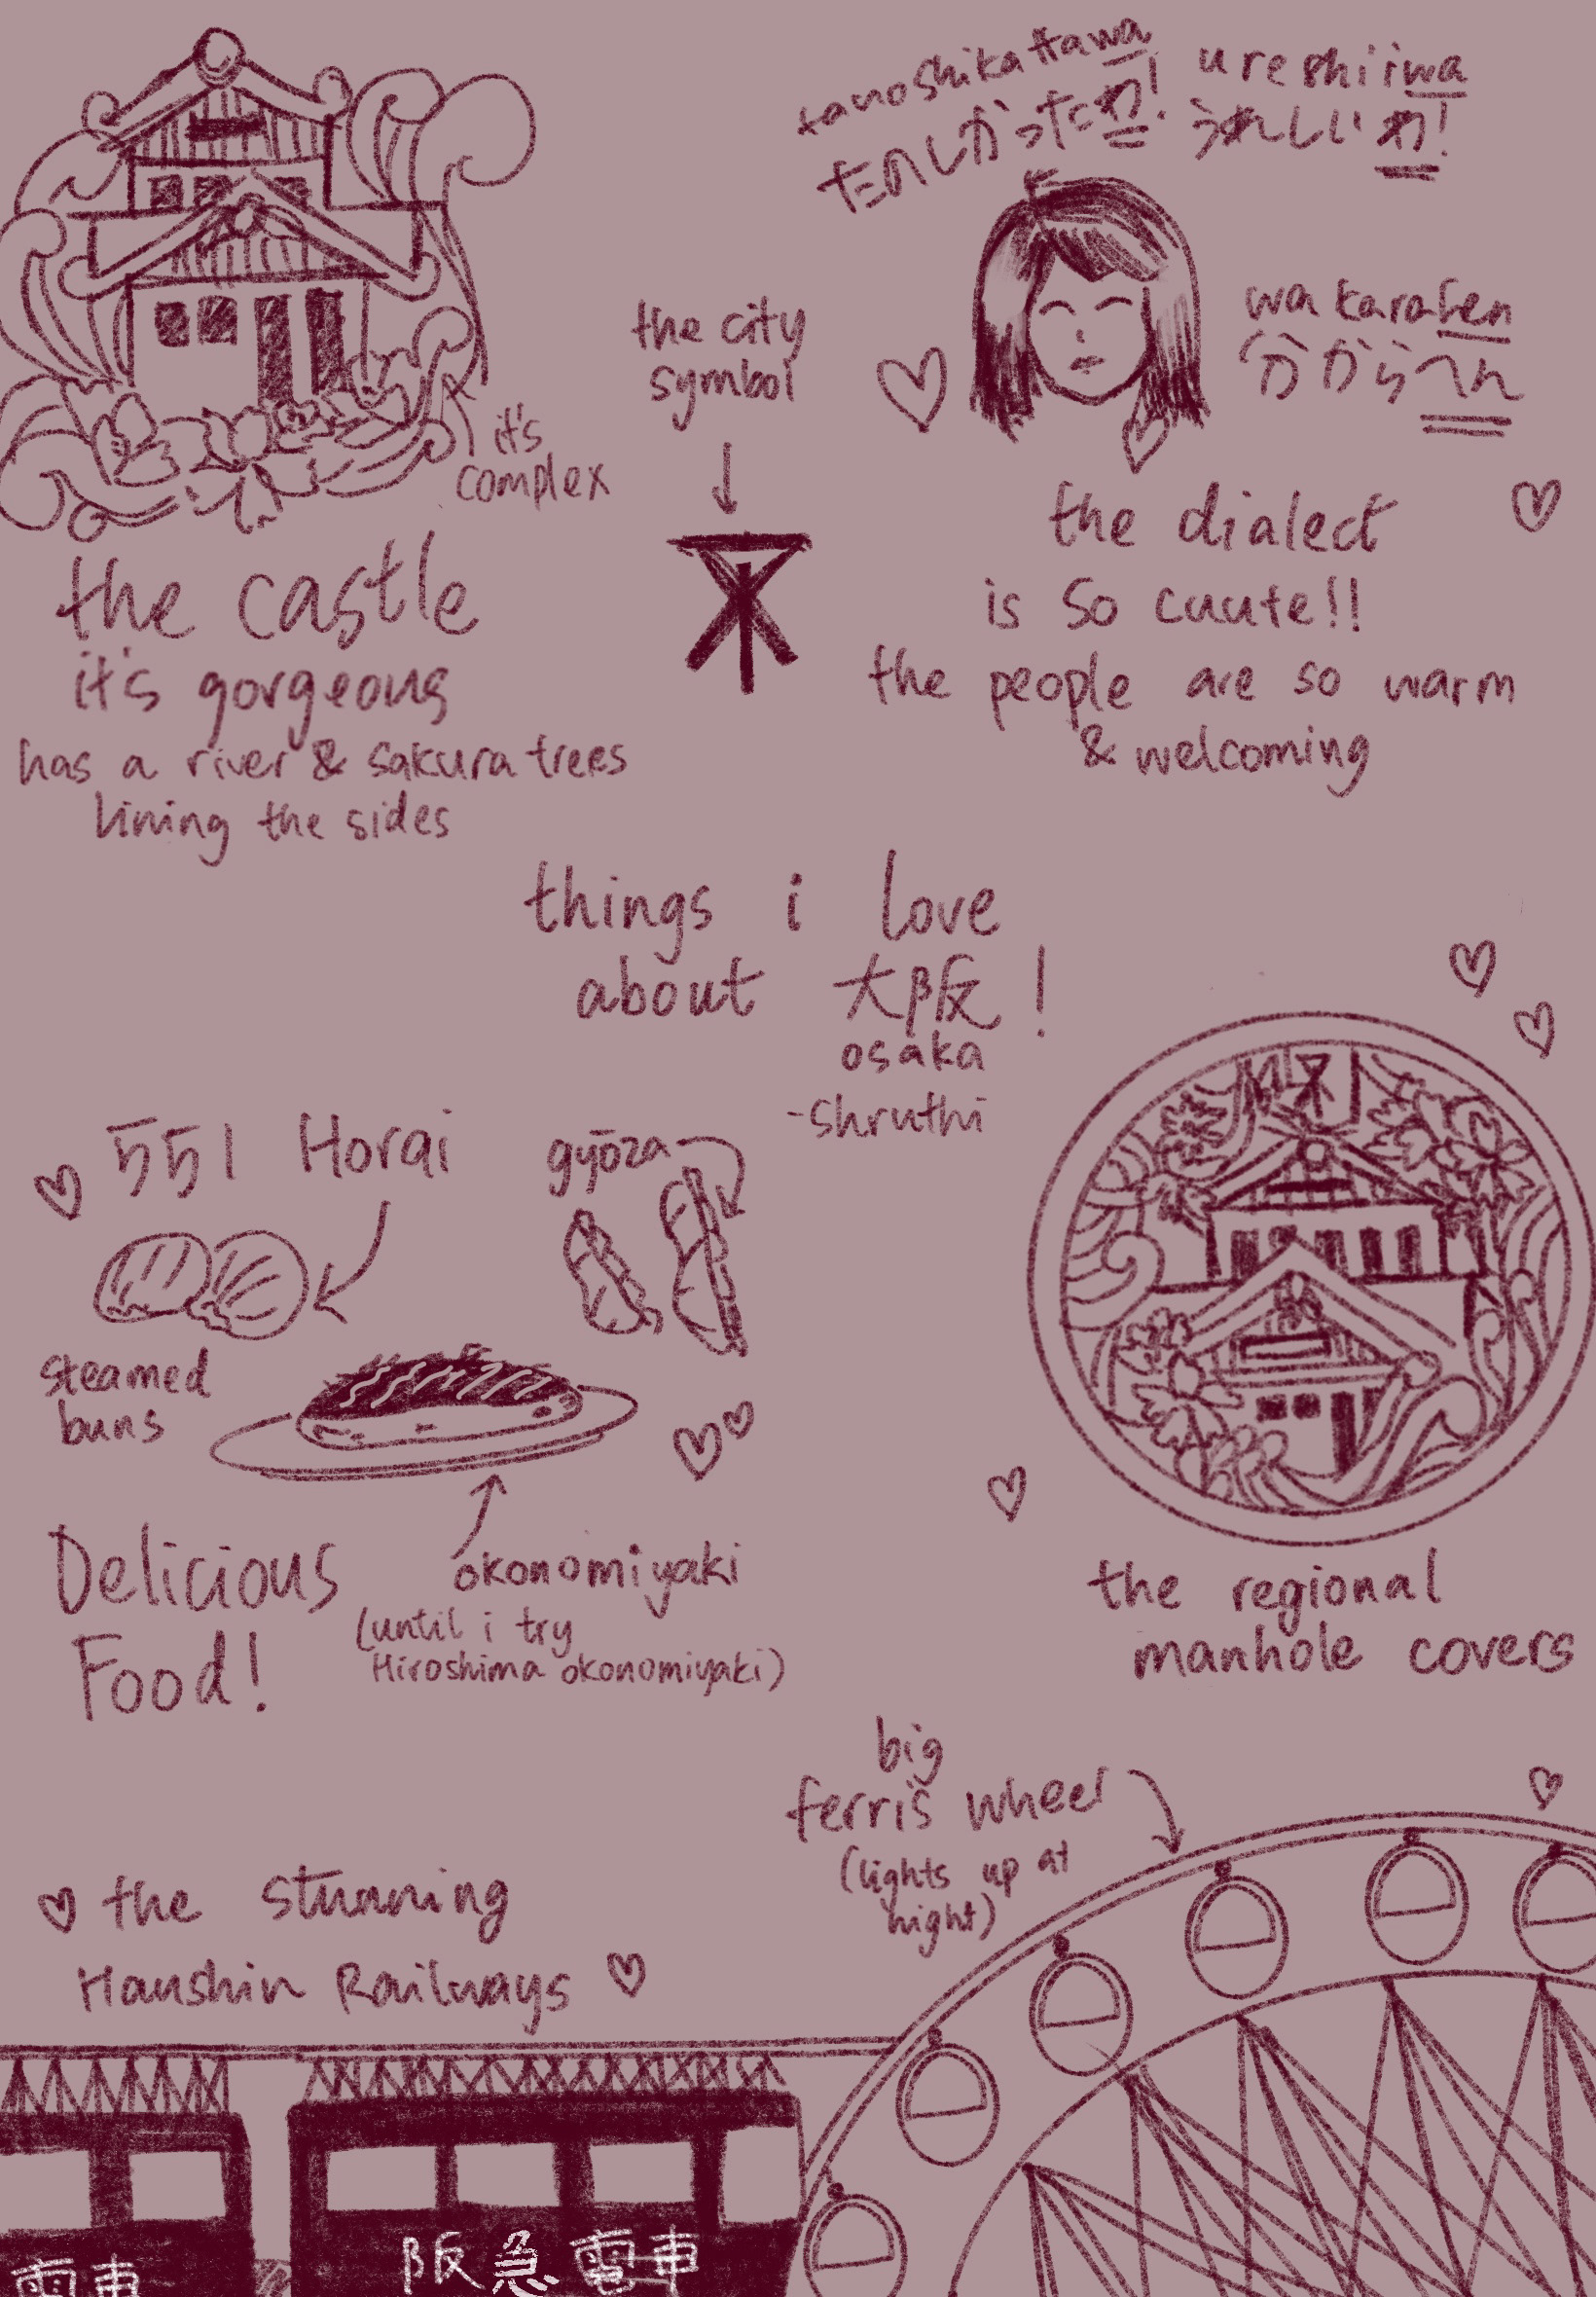 tanoshikattawa
たのしかったわ!
ureshiiwa
うれしいわ!
wakarahen
わからへん
the city
symbol
it's
complex
the castle
it's gorgeous
has a river & sakura trees
lining the sides
the dialect
is so cuute!!
the people are so warm
& welcoming
things i love
about 大阪!
osaka
-shruthi
551 Horai
gyōza
steamed
buns
Delicious
Food!
okonomiyaki
(until i try
Hiroshima okonomiyaki)
the regional
manhole covers
big
ferris wheel
(lights up at
night)
the stunning
Hanshin Railways
電車
阪急電車